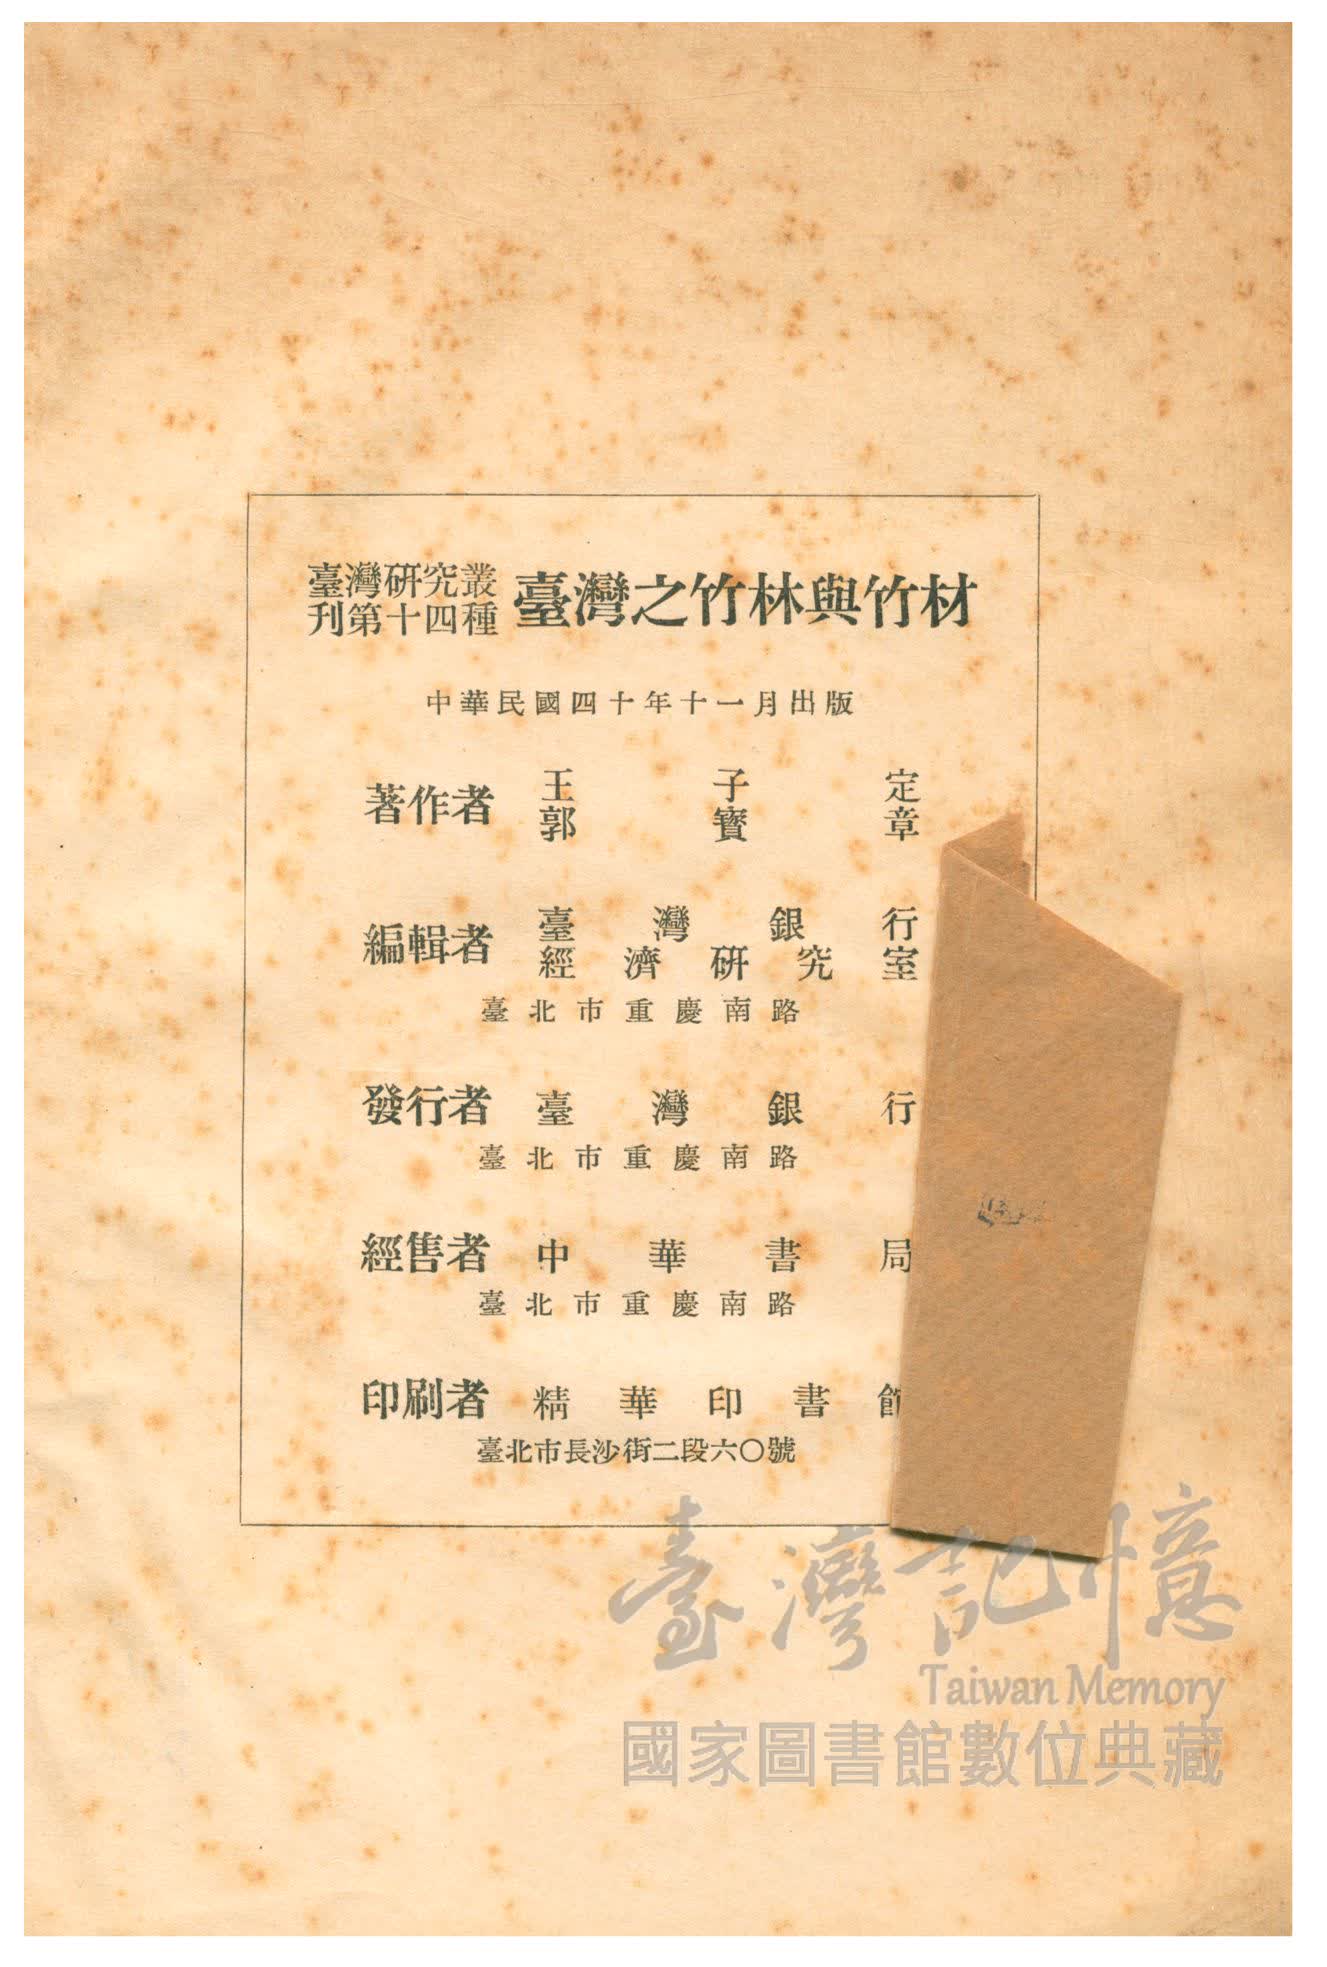 臺灣研究叢
刊第十四種
臺灣之竹林與竹材
中華民國四十年十一月出版
著作者
王子定
郭寶章
編輯者
臺灣銀行
經濟研究室
臺北市重慶南路
發行者 臺灣銀行
臺北市重慶南路
經售者 中華書局
臺北市重慶南路
印刷者 精華印書館
臺北市長沙街二段六〇號
臺灣記憶
Taiwan Memory
國家圖書館數位典藏